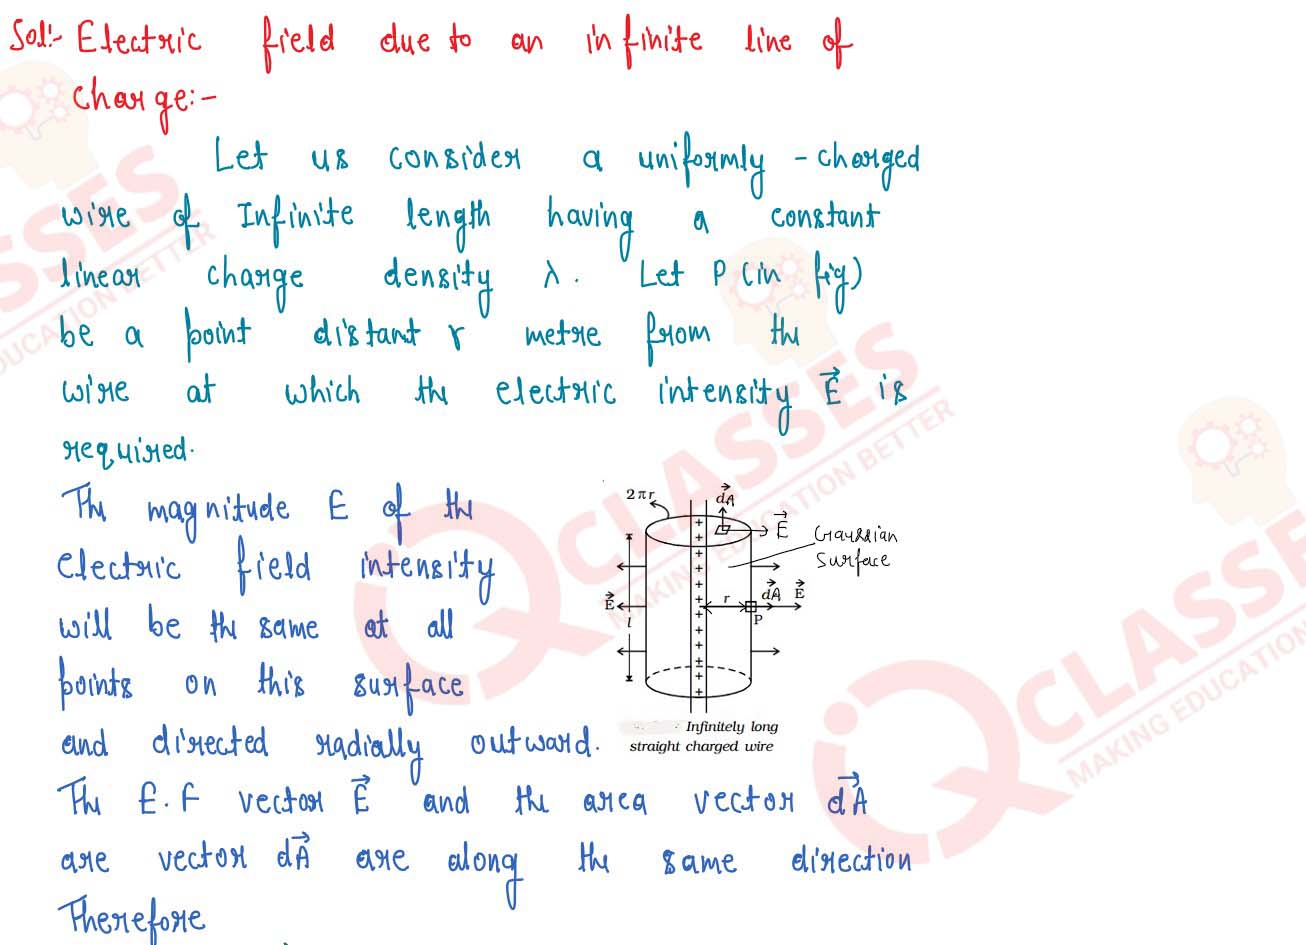 Sol:- Electric field due to an infinite line of
charge:-
Let us consider a uniformly - charged
wire of Infinite length having a constant
linear charge density λ. Let P (in fig)
be a point distant r metre from the
wire at which the electric intensity E⃗ is
required.
The magnitude E of the
electric field intensity
will be the same at all
points on this surface
and directed radially outward.
2πr
dA⃗
E⃗
Gaussian
Surface
E⃗
r
dA⃗ E⃗
l
P
Infinitely long
straight charged wire
The E.F vector E⃗ and the area vector dA⃗
are vector dA⃗ are along the same direction
Therefore
CLASSES
MAKING EDUCATION BETTER